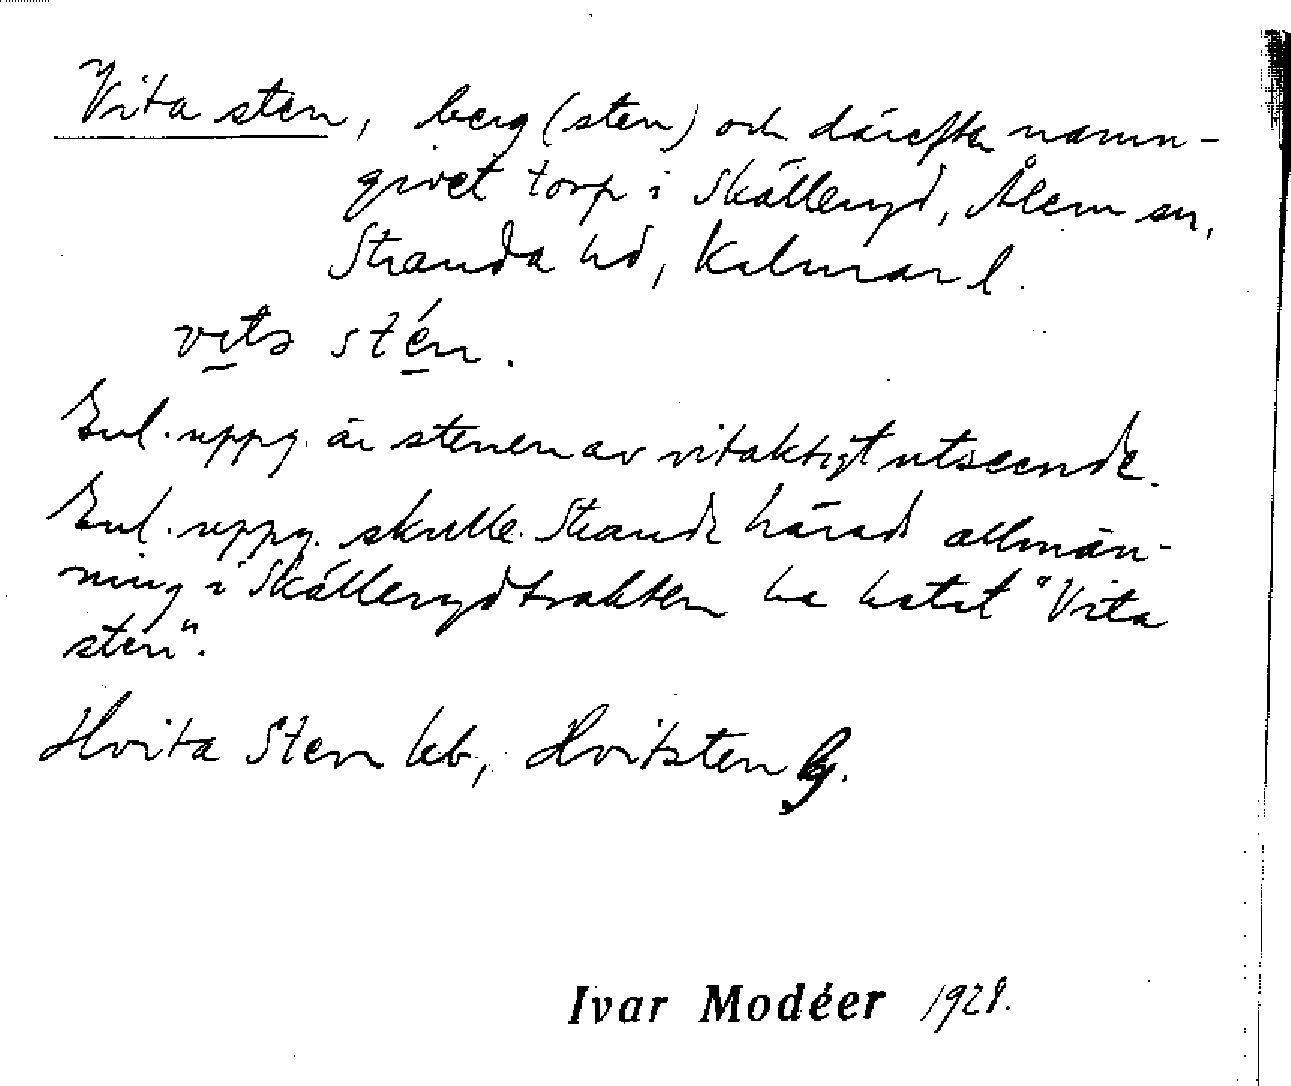 Vita sten, berg (sten) och därefter namn-
givet torp i Skälleryd, Ålem sn,
Stranda hd, Kalmar l.
vi̱tə sté̱n.
Enl. uppg. är stenen av vitaktigt utseende.
Enl. uppg. skulle Stranda härads allmän-
ning i Skällerydtrakten ha hetat "Vita
sten".
Hvita Sten kb, Hvitsten
Ivar Modéer 1928.